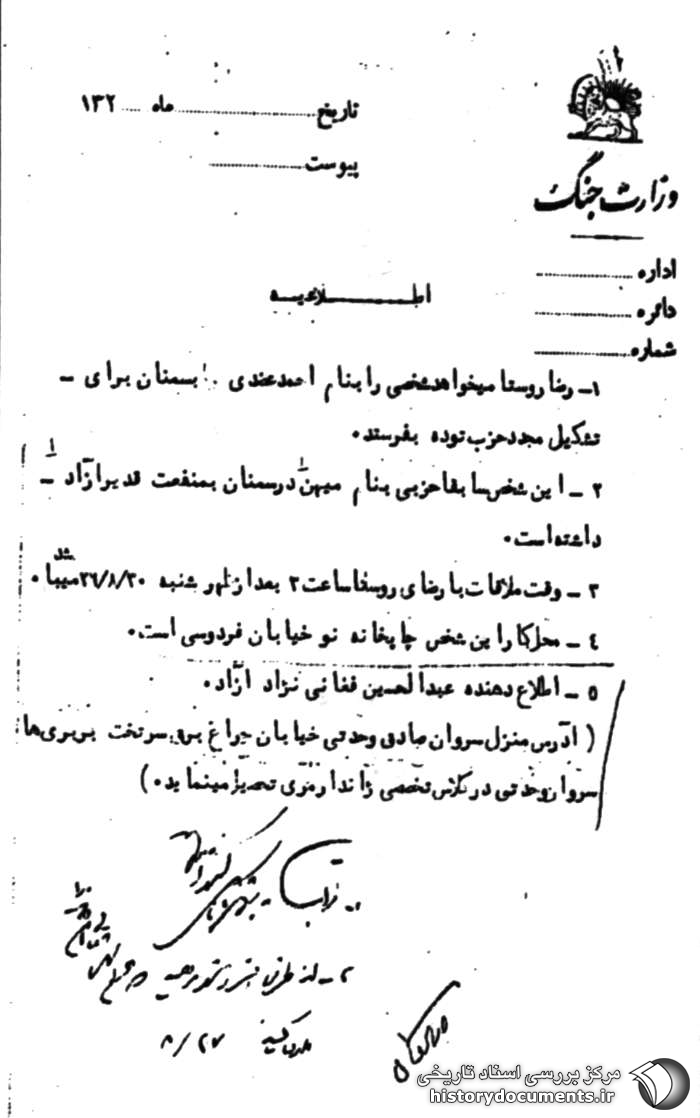 تاریخ ............ ماه .... ۱۳۲
پیوست ............
وزارت جنگ
اداره ............
دائره ............
شماره ............
اطلاعیه
۱ـ رضا روستا میخواهد شخصی را بنام احمد عندی بسمنان برای ـ
تشکیل مجدد حزب توده بفرستد.
۲ ـ این شخص سابقا حزبی بنام میهن در سمنان بمنفعت قدیرآزاد ـ
داشته است.
۳ ـ وقت ملاقات با رضای روستا ساعت ۳ بعد از ظهر شنبه ۲۶/۸/۳۰ میباشد.
٤ ـ محل کار این شخص چاپخانه نو خیابان فردوسی است.
۵ ـ اطلاع دهنده عبدالحسین فغانی نژاد آزاد.
( آدرس منزل سروان صادق وحدتی خیابان چراغ برق سرتخت بربریها
سروان وحدتی در کلاس تخصصی ژاندارمری تحصیل مینماید.)
۲ ـ از طرف
۸/۲۷
مرکز بررسی اسناد تاریخی
historydocuments.ir